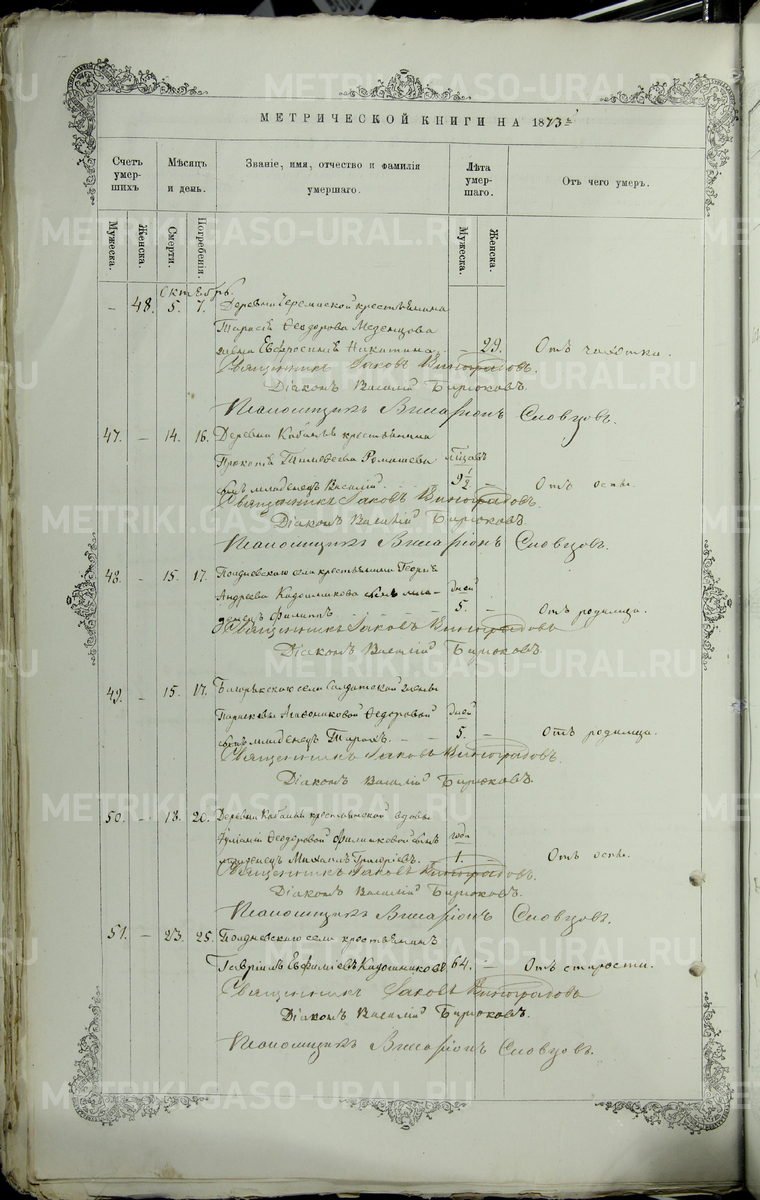 METRIKI.GASO-URAL.RU
МЕТРИЧЕСКОЙ КНИГИ НА 1873
Счетъ умер-шихъ
Мѣсяцъ и день.
Званіе, имя, отчество и фамилія умершаго.
Лѣта умер-шаго.
Отъ чего умеръ.
Мужеска.
Женска.
Смерти.
Погребенія.
Мужеска.
Женска.
Октябрь.
– 48. 5. 7. Деревни крестьянина
Тарасія Ѳеодорова Мезенцова
жена Евфросинія Никитина – 29. Отъ чахотки.
Священникъ Іаковъ Виноградовъ.
Діаконъ Василій Бирюковъ.
Псаломщикъ Виссаріонъ Словцовъ.
47. – 14. 16. Деревни крестьянина
Прокопія Тимоѳеева Ромашева мѣсяцъ
сынъ младенецъ Василій 9 1/2 Отъ оспы.
Священникъ Іаковъ Виноградовъ.
Діаконъ Василій Бирюковъ
Псаломщикъ Виссаріонъ Словцовъ.
48. – 15. 17. Полдневскаго села крестьянина Георгія
Андреева Кадошникова сынъ мла- дней
денецъ Филиппъ 5. – Отъ родимца.
Священникъ Іаковъ Виноградовъ
Діаконъ Василій Бирюковъ.
49. – 15. 17. Багарякскаго села Солдатской жены
Параскевы Агаѳониковой Ѳедоровой дней
сынъ младенецъ 5. – Отъ родимца.
Священникъ Іаковъ Виноградовъ.
Діаконъ Василій Бирюковъ.
50. – 18. 20. Деревни крестьянской вдовы
Іуліаніи Ѳеодоровой сынъ года
младенецъ Михаилъ Григоріевъ. 1. – Отъ оспы.
Священникъ Іаковъ Виноградовъ.
Діаконъ Василій Бирюковъ.
Псаломщикъ Виссаріонъ Словцовъ.
51. – 23. 25. Полдневскаго села крестьянинъ
Гавріилъ Евфиміевъ Кадошниковъ 64. – Отъ старости.
Священникъ Іаковъ Виноградовъ
Діаконъ Василій Бирюковъ.
Псаломщикъ Виссаріонъ Словцовъ.